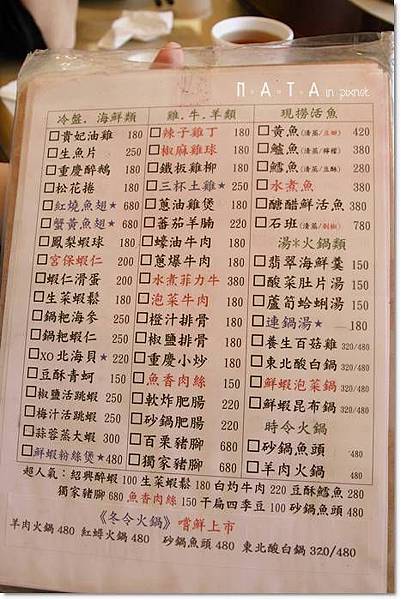 ПАТА in pixnet
冷盤．海鮮類
□貴妃油雞 180
□生魚片 250
□重慶醉鵝 180
□松花捲 180
□紅燒魚翅★ 380
□蟹黃魚翅★ 380
□鳳梨蝦球 180
□宮保蝦仁 180
□蝦仁滑蛋 200
□生菜蝦鬆 180
□鍋粑海參 250
□鍋粑蝦仁 250
□XO北海貝★ 220
□豆酥青蚵 150
□椒鹽活跳蝦 250
□梅汁活跳蝦 250
□蒜蓉蒸大蝦 300
□鮮蝦粉絲煲★480
雞．牛．羊類
□辣子雞丁 180
□椒麻雞球 180
□鐵板雞柳 180
□三杯土雞★ 250
□蔥油雞煲 180
□蕃茄羊腩 220
□蠔油牛肉 180
□蔥爆牛肉 180
□水煮菲力牛 380
□泡菜牛肉 180
□橙汁排骨 180
□椒鹽排骨 180
□重慶小炒 180
□魚香肉絲 150
□軟炸肥腸 220
□砂鍋肥腸 220
□百果豬腳 680
□獨家豬腳 680
現撈活魚
□黃魚(清蒸/豆瓣) 420
□鱸魚(清蒸/檸檬) 380
□鱈魚(清蒸/豆酥) 280
□水煮魚 380
□醋醋鮮活魚 380
□石班(清蒸/剁椒) 780
湯＊火鍋類
□翡翠海鮮羹 150
□酸菜肚片湯 150
□蘆筍蛤蜊湯 150
□連鍋湯★ 180
□養生百菇雞 320/480
□東北酸白鍋 320/480
□鮮蝦泡菜鍋 320/480
□鮮蝦昆布鍋 320/480
時令火鍋
□砂鍋魚頭 480
□羊肉火鍋 480
超人氣：紹興醉蝦 100 生菜蝦鬆 180 白灼牛肉 220 豆酥鱈魚 280
獨家豬腳 680 魚香肉絲 150 干扁四季豆 100 砂鍋魚頭 480
《冬令火鍋》嚐鮮上市
羊肉火鍋 480 紅蟳火鍋 480 砂鍋魚頭 480 東北酸白鍋 320/480